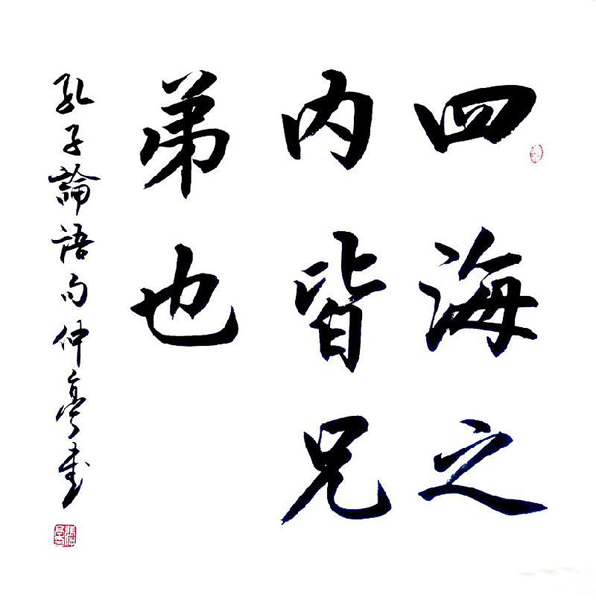 四海之
内皆兄
弟也
孔子論語句仲亭書